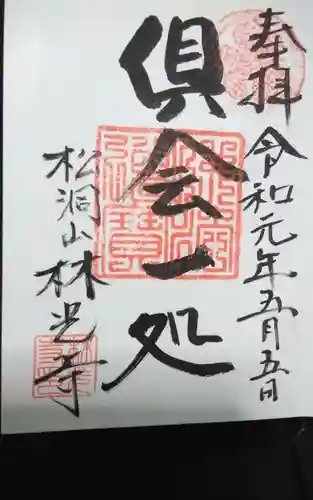 奉拝
令和元年五月五日
倶会一処
松洞山林光寺